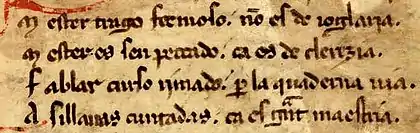 M ester trago fermoso. nõ es de ioglaria.
M ester es sen peccado. ca es de clerezia.
F ablar curso rimado. p̲ la quaderna uia.
A sillauas cuntadas. ca es gͣnt maestria.